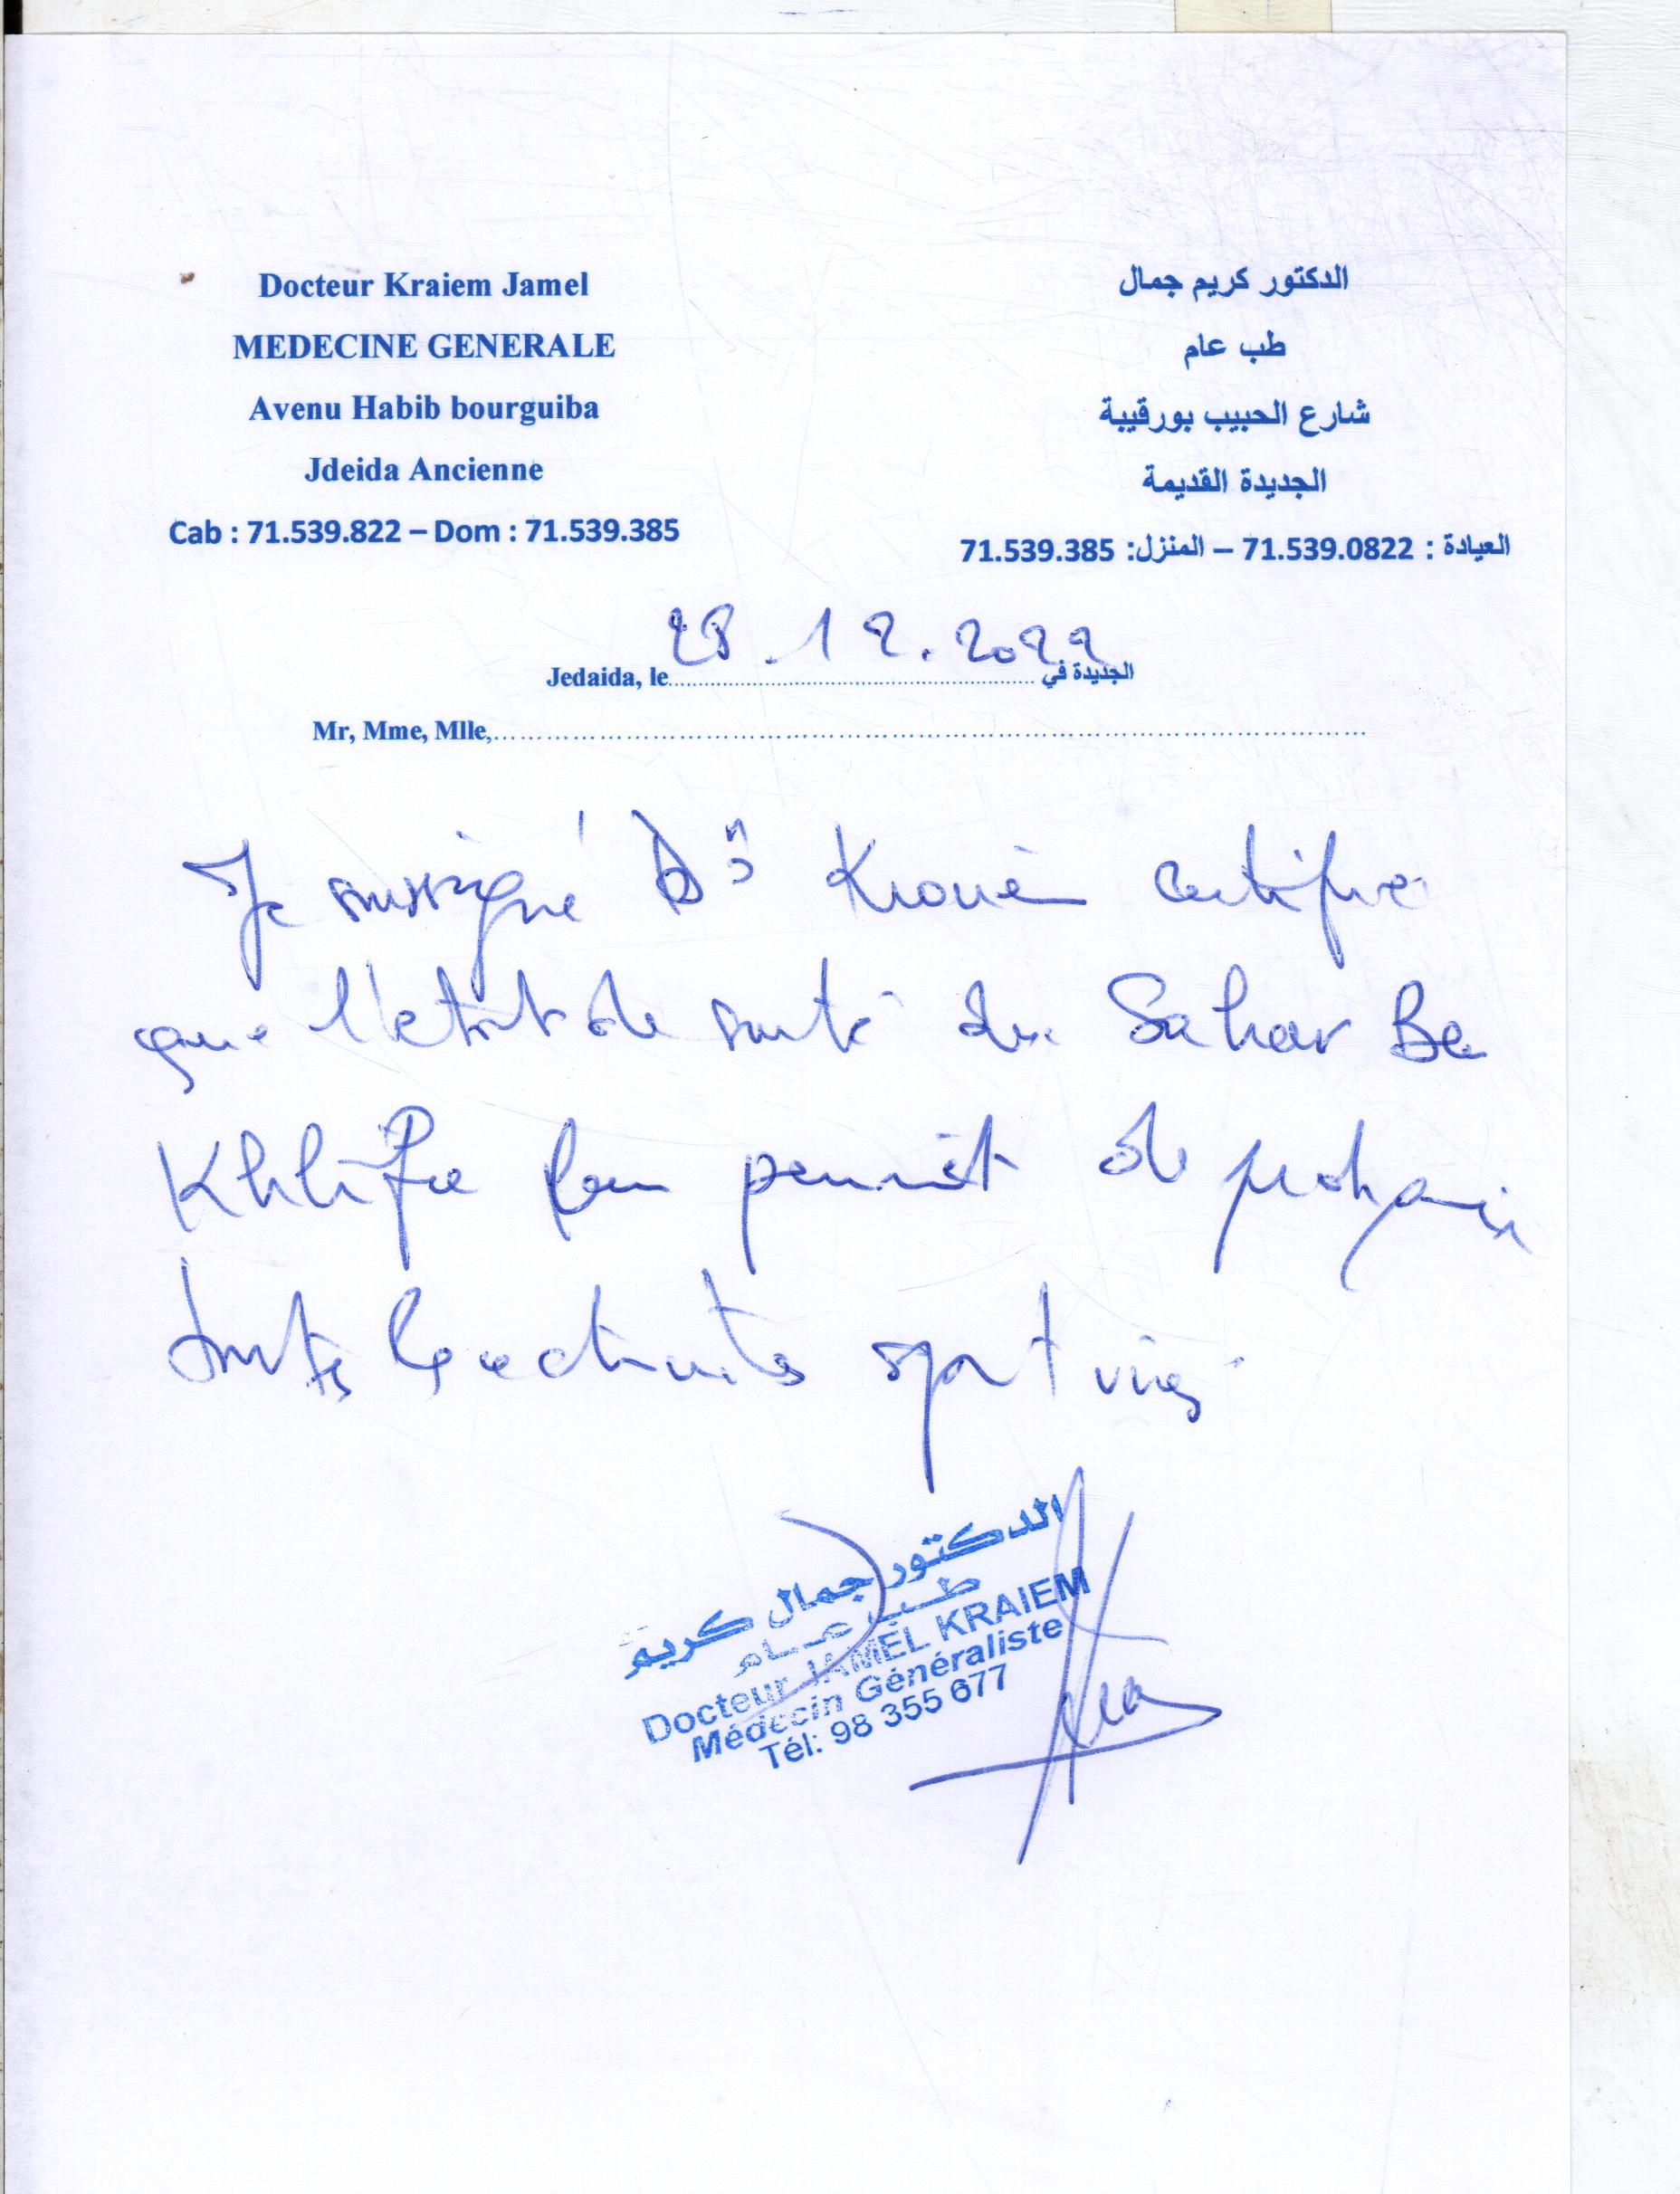 Docteur Kraiem Jamel
MEDECINE GENERALE
Avenu Habib bourguiba
Jdeida Ancienne
Cab : 71.539.822 – Dom : 71.539.385
الدكتور كريم جمال
طب عام
شارع الحبيب بورقيبة
الجديدة القديمة
العيادة : 71.539.0822 – المنزل: 71.539.385
Jedaida, le 28.12.2022 الجديدة في
Mr, Mme, Mlle,
Je soussigné Dr certifie
que l'état de santé de Sahar Be
Khlifa permet de
toutes les activités sportives
الدكتور جمال كريم
طب عام
Docteur JAMEL KRAIEM
Médecin Généraliste
Tél: 98 355 677